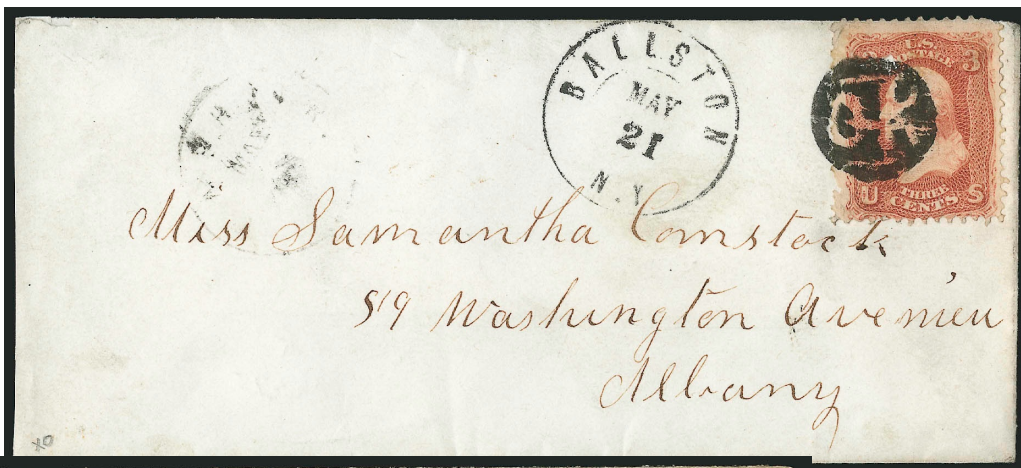 BALLSTON
MAY
21
N.Y.
U.S. POSTAGE
3
U THREE CENTS S
Miss Samantha Comstock
519 Washington Avenieu
Albany
XO